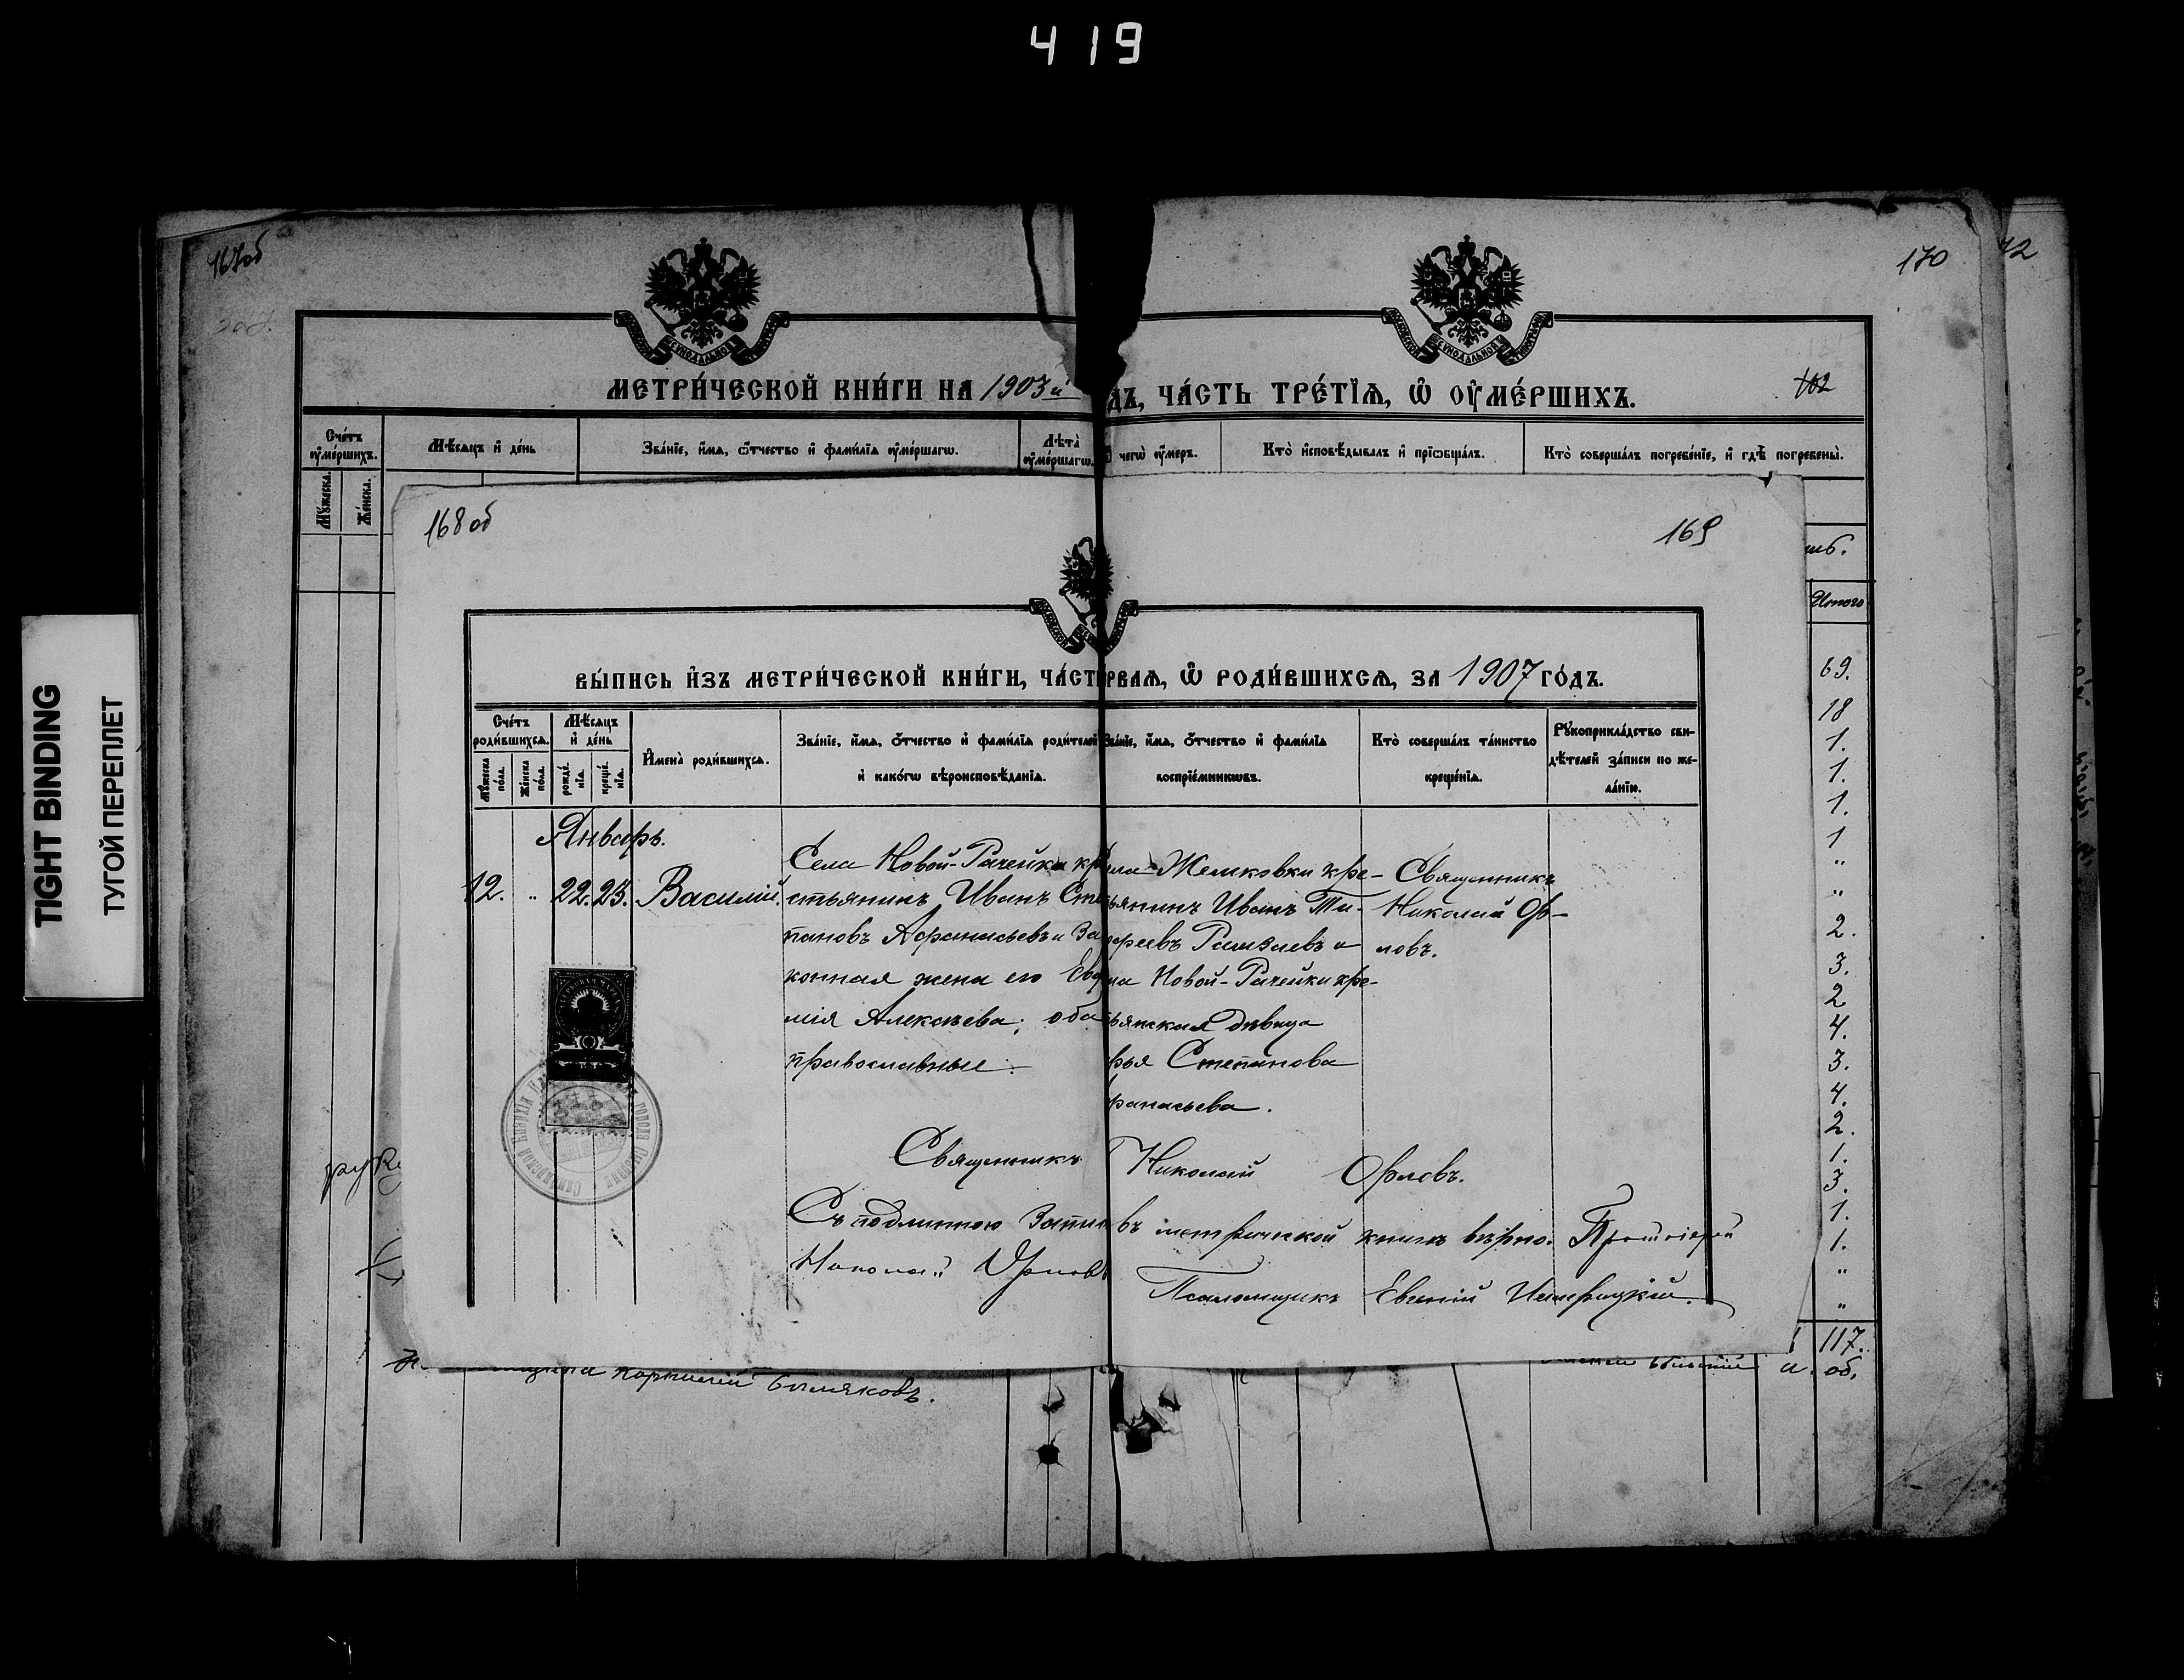 419
TIGHT BINDING
ТУГОЙ ПЕРЕПЛЕТ
167об
170
72
МЕТРИ́ЧЕСКОЙ КНИ́ГИ НА 1903й
ДЪ, ЧА́СТЬ ТРЕ́ТЇѦ, Ѡ҆ ОУ҆МЕ́РШИХЪ.
102
Сче́тъ оу҆ме́ршихъ.
Мꙋ́жеска.
Же́нска.
Мѣ́сѧцъ и҆ де́нь
Зва́нїе, и҆́мѧ, ѻ҆́тчество и҆ фами́лїѧ оу҆ме́ршагѡ.
Лѣта̀ оу҆ме́ршагѡ.
чегѡ̀ оу҆́меръ.
Кто̀ и҆сповѣ́дывалъ и҆ прїѡбща́лъ.
Кто̀ соверша́лъ погребе́нїе, и҆ гдѣ̀ погребены̀.
168 об
169
ВЫ́ПИСЬ И҆ЗЪ МЕТРИ́ЧЕСКОЙ КНИ́ГИ, ЧА́СТ РВАѦ, Ѡ҆ РОДИ́ВШИХСѦ, ЗА 1907 ГО́ДЪ.
Сче́тъ роди́вшихсѧ.
Мꙋ́жеска по́ла.
Же́нска по́ла.
Мѣ́сѧцъ и҆ де́нь
рожде́нїѧ.
креще́нїѧ.
И҆мена̀ роди́вшихсѧ.
Зва́нїе, и҆́мѧ, ѻ҆́тчество и҆ фами́лїѧ роди́телей
и҆ како́гѡ вѣроисповѣ́данїѧ.
Зва́нїе, и҆́мѧ, ѻ҆́тчество и҆ фами́лїѧ
воспрїе́мникѡвъ.
Кто̀ соверша́лъ та́инство
креще́нїѧ.
Рꙋкоприкла́дство сви-
дѣ́телей за́писи по же-
ла́нїю.
Январь.
12. „ 22. 23. Василій.
Села Новой-Рачейки кр
стьянинъ Иванъ Сте
пановъ Афанасьевъ и За
конная жена его Евф
мія Алексѣева; оба
православные.
ла Жемковки кре-
ьянинъ Иванъ Ти-
офеевъ и
ла Новой-Рачейки кре-
ьянская дѣвица
рья Степанова
фанасьева.
Священникъ
Николай Ор-
ловъ.
Священникъ Николай Орловъ.
Съ подлинною Запис въ метрической книгѣ вѣрно. Протоіерей
Николай Орловъ
Псаломщикъ Евгеній
Итого
69.
18
1.
1.
1.
1
„
„
2.
3.
2
4.
3.
4.
2.
1.
3.
1.
1.
„
„
117.
об.